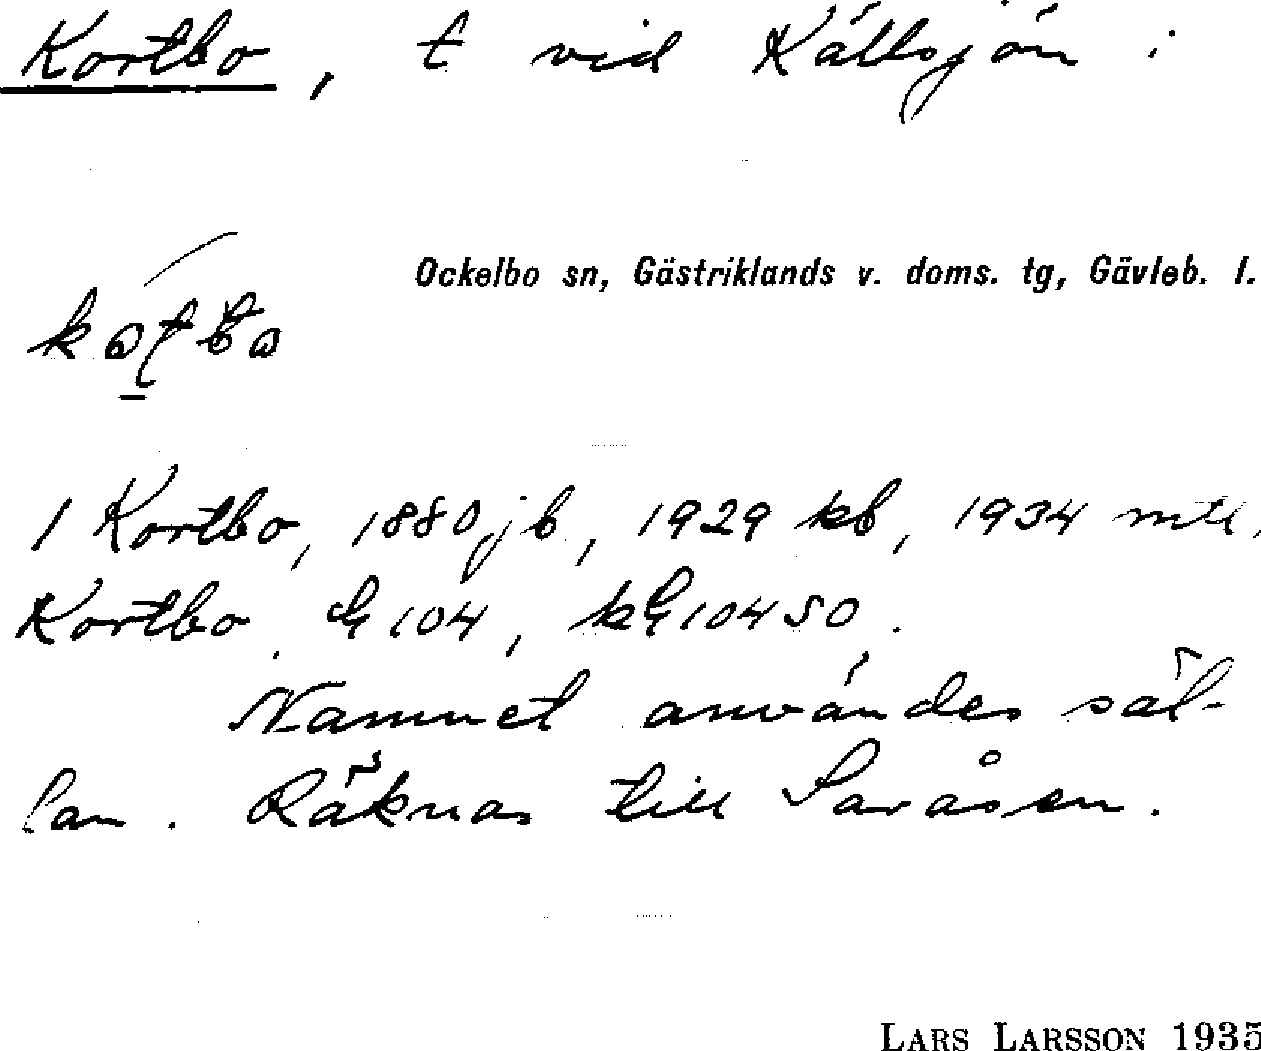 Kortbo, t vid Källsjön i
Ockelbo sn, Gästriklands v. doms. tg, Gävleb. l.
1 Kortbo, 1880 jb, 1929 kb, 1934 mtl,
Kortbo G 104, kG 104 SO.
Namnet användes säl-
lan. Räknas till Savåsen.
LARS LARSSON 1935